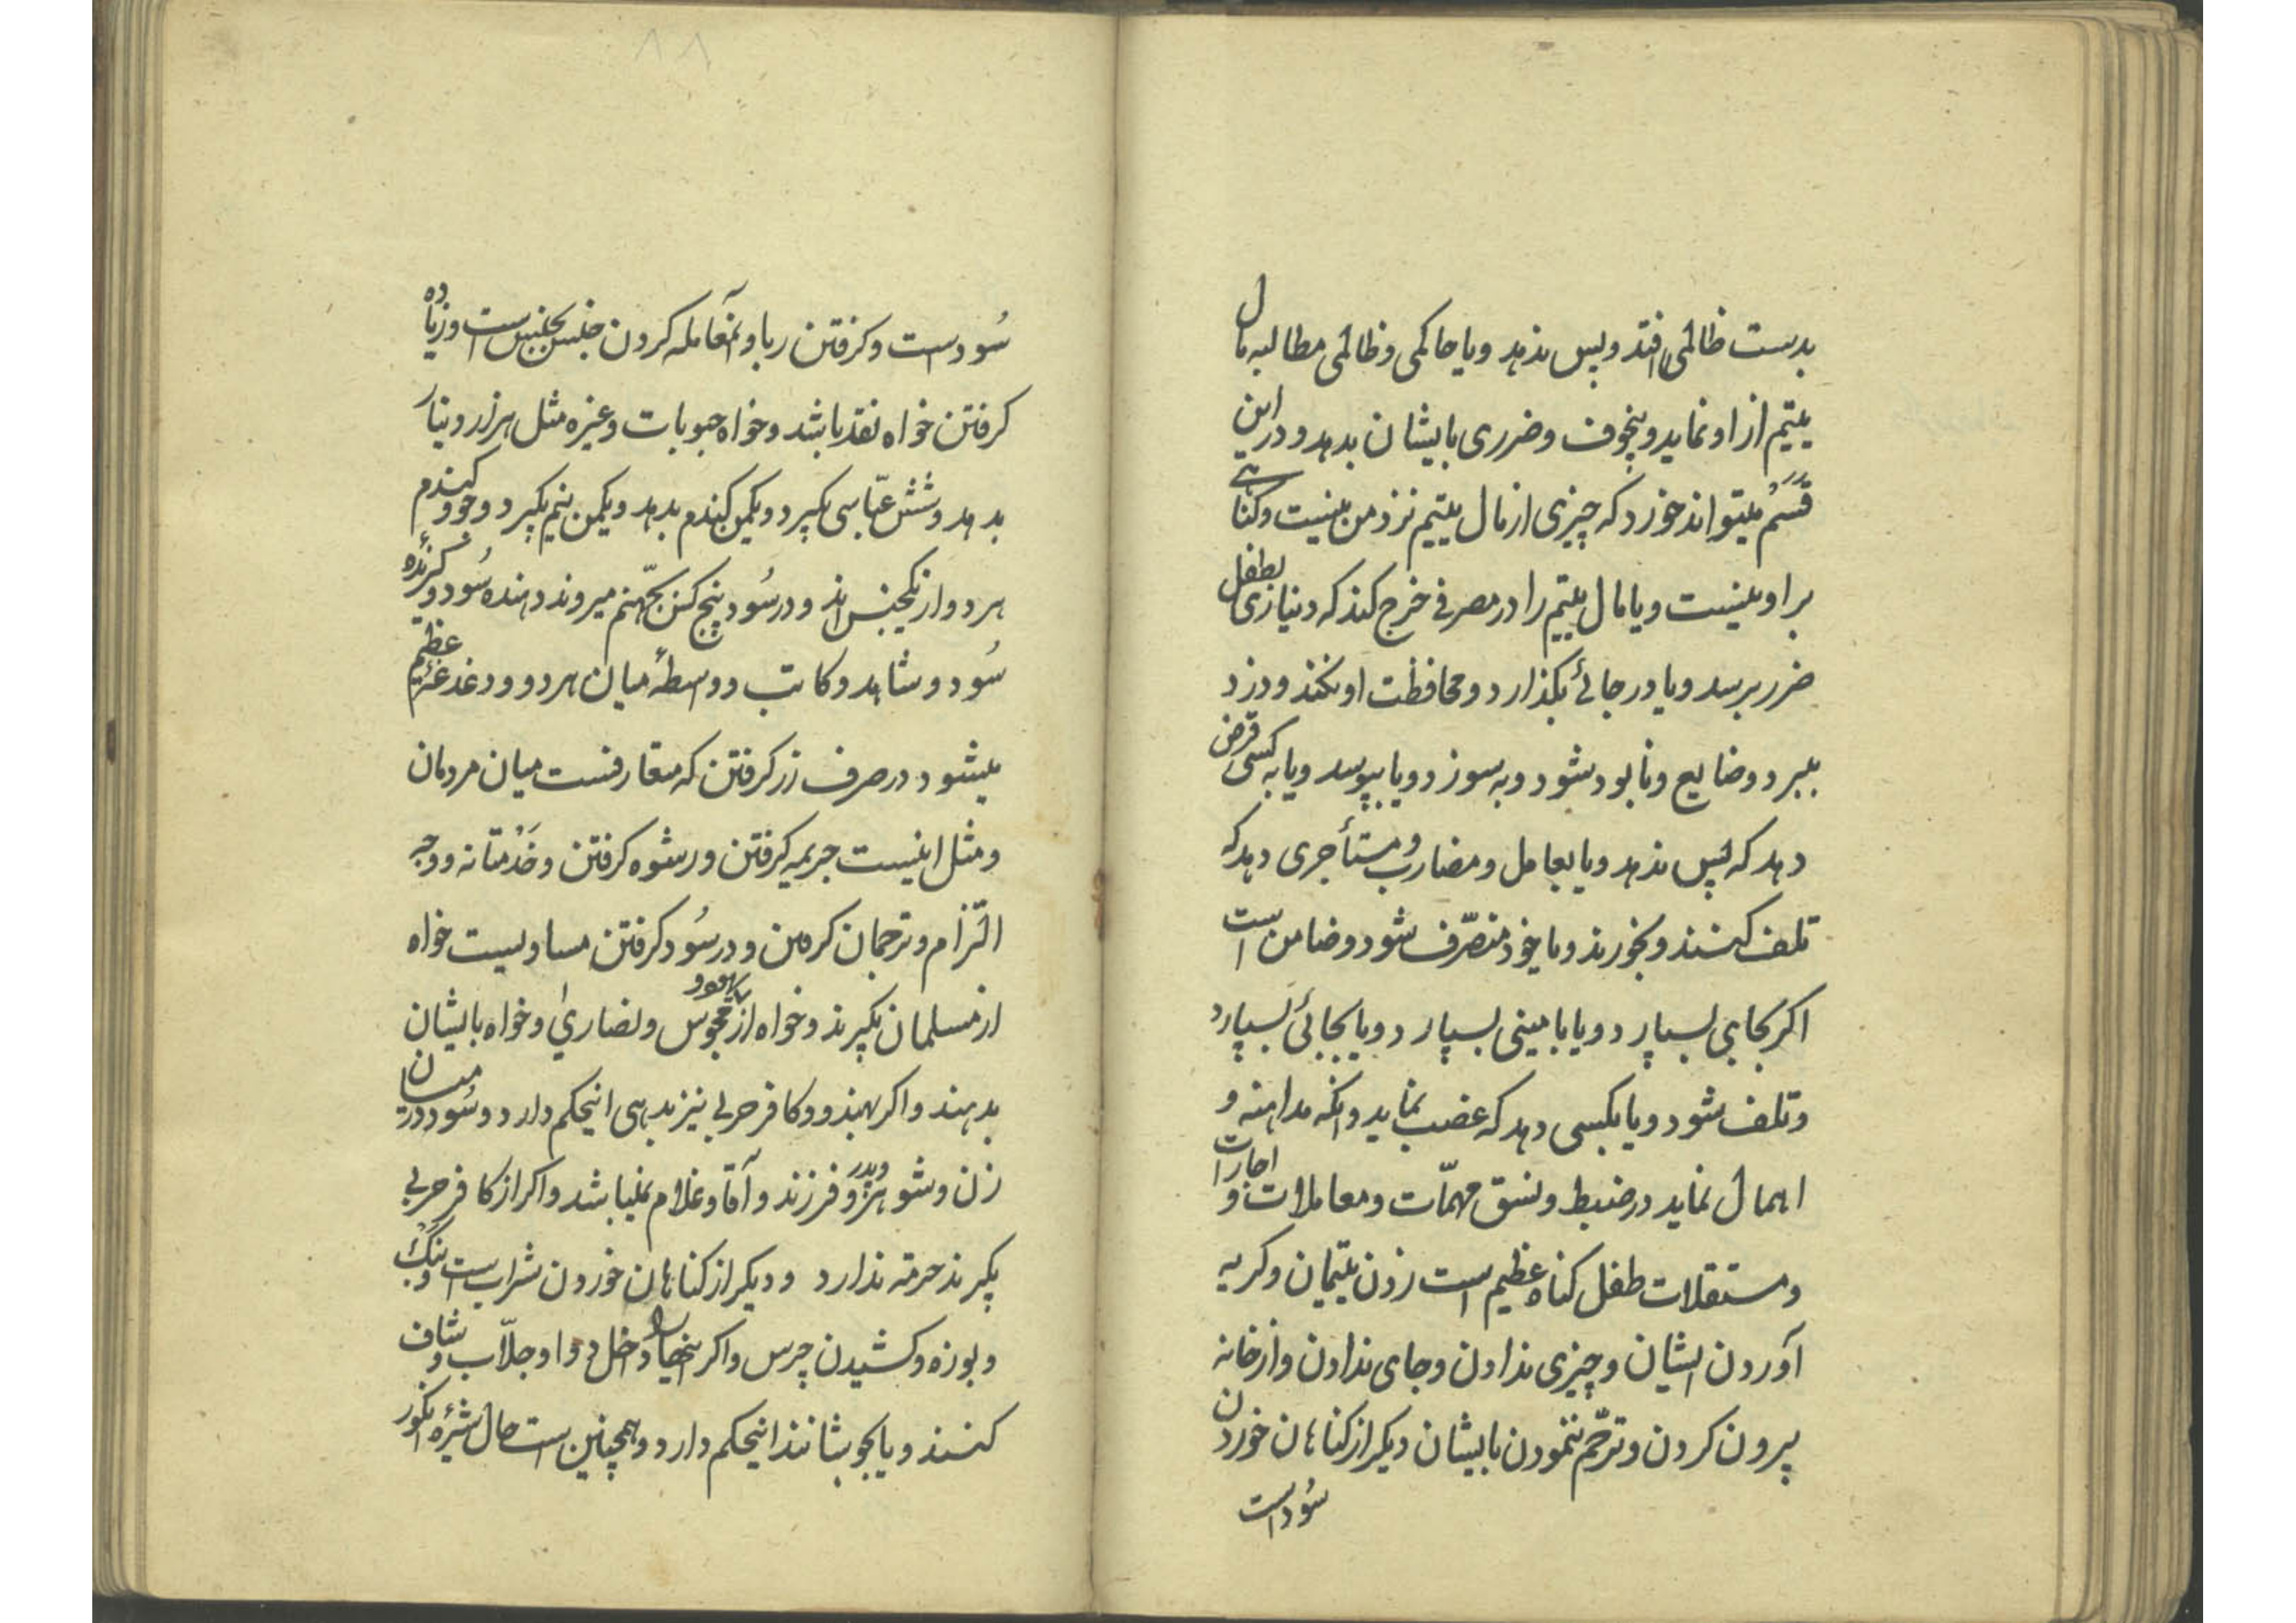 بدست ظالمی افتد و پس ندهد و یا حاکمی و ظالمی مطالبه مال
یتیم از او نماید و بخوف و ضرری بایشان بدهد و در این
قسم میتواند خورد که چیزی از مال یتیم نزد من نیست و کناهی
بر او نیست و یا مال یتیم را در مصرفی خرج کند که دنیازی بطفل
ضرر برسد و یا در جائی بکذارد و محافظت او نکند و دزد
ببرد و ضایع و نابود شود و به سوزد و یا بپوسد و یا به کسی قرض
دهد که پس ندهد و یا بعامل و مضارب و مستأجری دهد که
تلف کنند و بخورند و یا خود متصرّف شود و ضامن است
اکر بجای بسپارد و یا بامینی بسپارد و یا بجائی بسپارد
و تلف شود و یا بکسی دهد که غضب نماید و انکه مداهنه و
اهمال نماید در ضبط و نسق مهمّات و معاملات و اجارات
و مستقلات طفل کناه عظیم است زدن یتیمان و کریه
آوردن ایشان و چیزی ندادن و جای ندادن و از خانه
بیرون کردن و ترحّم ننمودن بایشان دیکر از کناهان خوردن
سُود است
۸۸
سُود است و کرفتن ربا و آنمعامله کردن جنس بجنس است و زیاده
کرفتن خواه نقد باشد و خواه حبوبات و غیره مثل هزار دینار
بدهد و شش عبّاسی بکیرد و یکمن کندم بدهد و یکمن نیم بکیرد و جو و کندم
هر دو از یکجنس اند و در سُود پنج کس بجهنّم میروند دهنده سُود و کیرنده
سُود و شاهد و کاتب و واسطهٔ میان هر دو و دغدغهٔ عظیم
میشود در صرف زر کرفتن که متعارفست میان مردمان
و مثل اینست جریمه کرفتن و رشوه کرفتن و خدمتانه و وجه
التزام و ترجمان کرفتن و در سُود کرفتن مساویست خواه
از مسلمان بکیرند و خواه از یهود و مجوس و نصاری و خواه بایشان
بدهند و اکر بهندو و کافر حربی نیز بدهی اینحکم دارد و سُود در میان
زن و شوهر و پدر و فرزند و آقا و غلام نمیباشد و اکر از کافر حربی
بکیرند حرمة ندارد و دیکر از کناهان خوردن شراب است و بنک
و بوزه و کشیدن چرس و اکر اینها را داخل دوا و جلاّب و شاف
کنند و یا بجوشانند اینحکم دارد و همچنین است حال شیرهٔ انکور